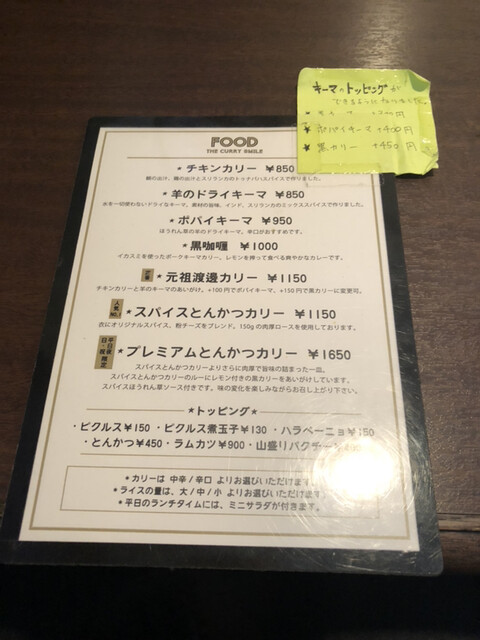 キーマのトッピングが
できるように
ポパイキーマ +400円
★ 黒カリー +450円
FOOD
THE CURRY SMILE
★ チキンカリー ¥850
★ 羊のドライキーマ ¥850
水を一切使わないドライなキーマ。素材の旨味、インド、スリランカのミックススパイスで作りました。
★ ポパイキーマ ¥950
ほうれん草の羊のドライキーマ。辛口がおすすめです。
黒咖喱 ¥1000
イカスミを使ったポークキーマカリー。レモンを搾って食べる爽やかなカレーです。
定番 ★ 元祖渡邊カリー ¥1150
チキンカリーと羊のキーマのあいがけ。+100円でポパイキーマ、+150円で黒カリーに変更可。
人気NO.1 ★ スパイスとんかつカリー ¥1150
衣にオリジナルスパイス、粉チーズをブレンド。150gの肉厚ロースを使用しております。
平日夜 日・祝 限定 ★ プレミアムとんかつカリー ¥1650
スパイスとんかつカリーよりさらに肉厚で旨味の詰まった一皿。
スパイスとんかつカリーのルーにレモン付きの黒カリーをあいがけしています。
スパイスほうれん草ソース付きです。味の変化を楽しみながらお召し上がり下さい。
★トッピング★
・ピクルス¥150 ・ピクルス煮玉子¥130 ・ハラペーニョ¥150
・とんかつ¥450 ・ラムカツ¥900 ・山盛りパクチー
★カリーは 中辛/辛口 よりお選びいただけます。
★ライスの量は、大/中/小 よりお選びいただけます。
★平日のランチタイムには、ミニサラダが付きます。